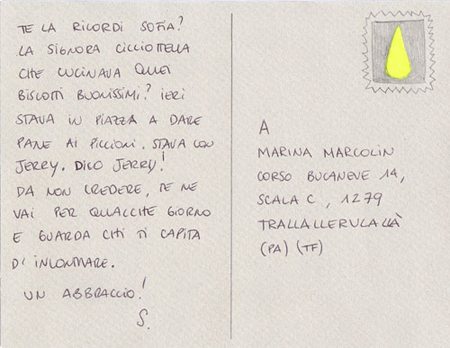 TE LA RICORDI SOFIA?
LA SIGNORA CICCIOTTELLA
CHE CUCINAVA QUEI
BISCOTTI BUONISSIMI? IERI
STAVA IN PIAZZA A DARE
PANE AI PICCIONI. STAVA CON
JERRY. DICO JERRY!
DA NON CREDERE, TE NE
VAI PER QUALCHE GIORNO
E GUARDA CHI TI CAPITA
DI INCONTRARE.
UN ABBRACCIO!
S.
A
MARINA MARCOLIN
CORSO BUCANEVE 14,
SCALA C, 1279
TRALLALLERULALLÀ
(PA) (TF)